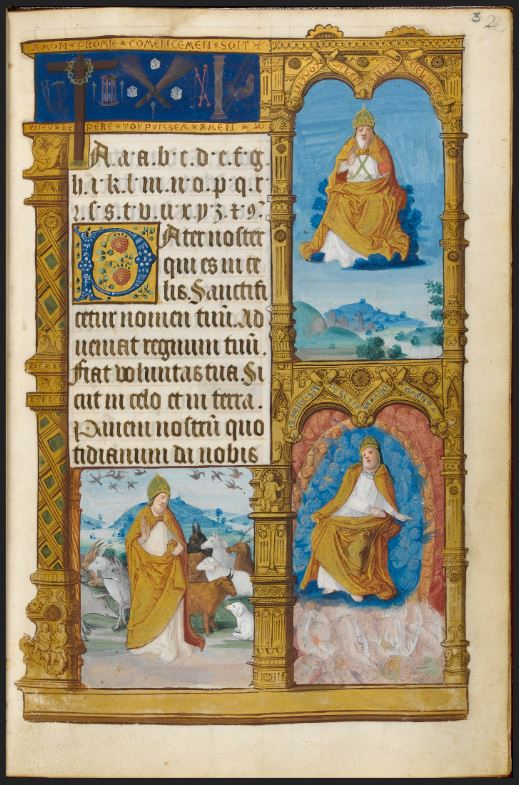 3
22
AMON PROMIE COMENCEMEN SOIT
DIEV REPERE TOVPVISSEM AMEN
A.a.a.b.c.d.e.f.g.
h.i.k.l.m.n.o.p.q.r
ꝛ.ſ.s.t.v.u.x.y.z.⁊.ꝯ.
Pater noster
qui es in ce
lis. Sanctifi
cetur nomen tuū. Ad
ueniat regnum tuū.
Fiat voluntas tua. Si
cut in celo et in terra.
Panem nostrū quo
tidianum da nobis